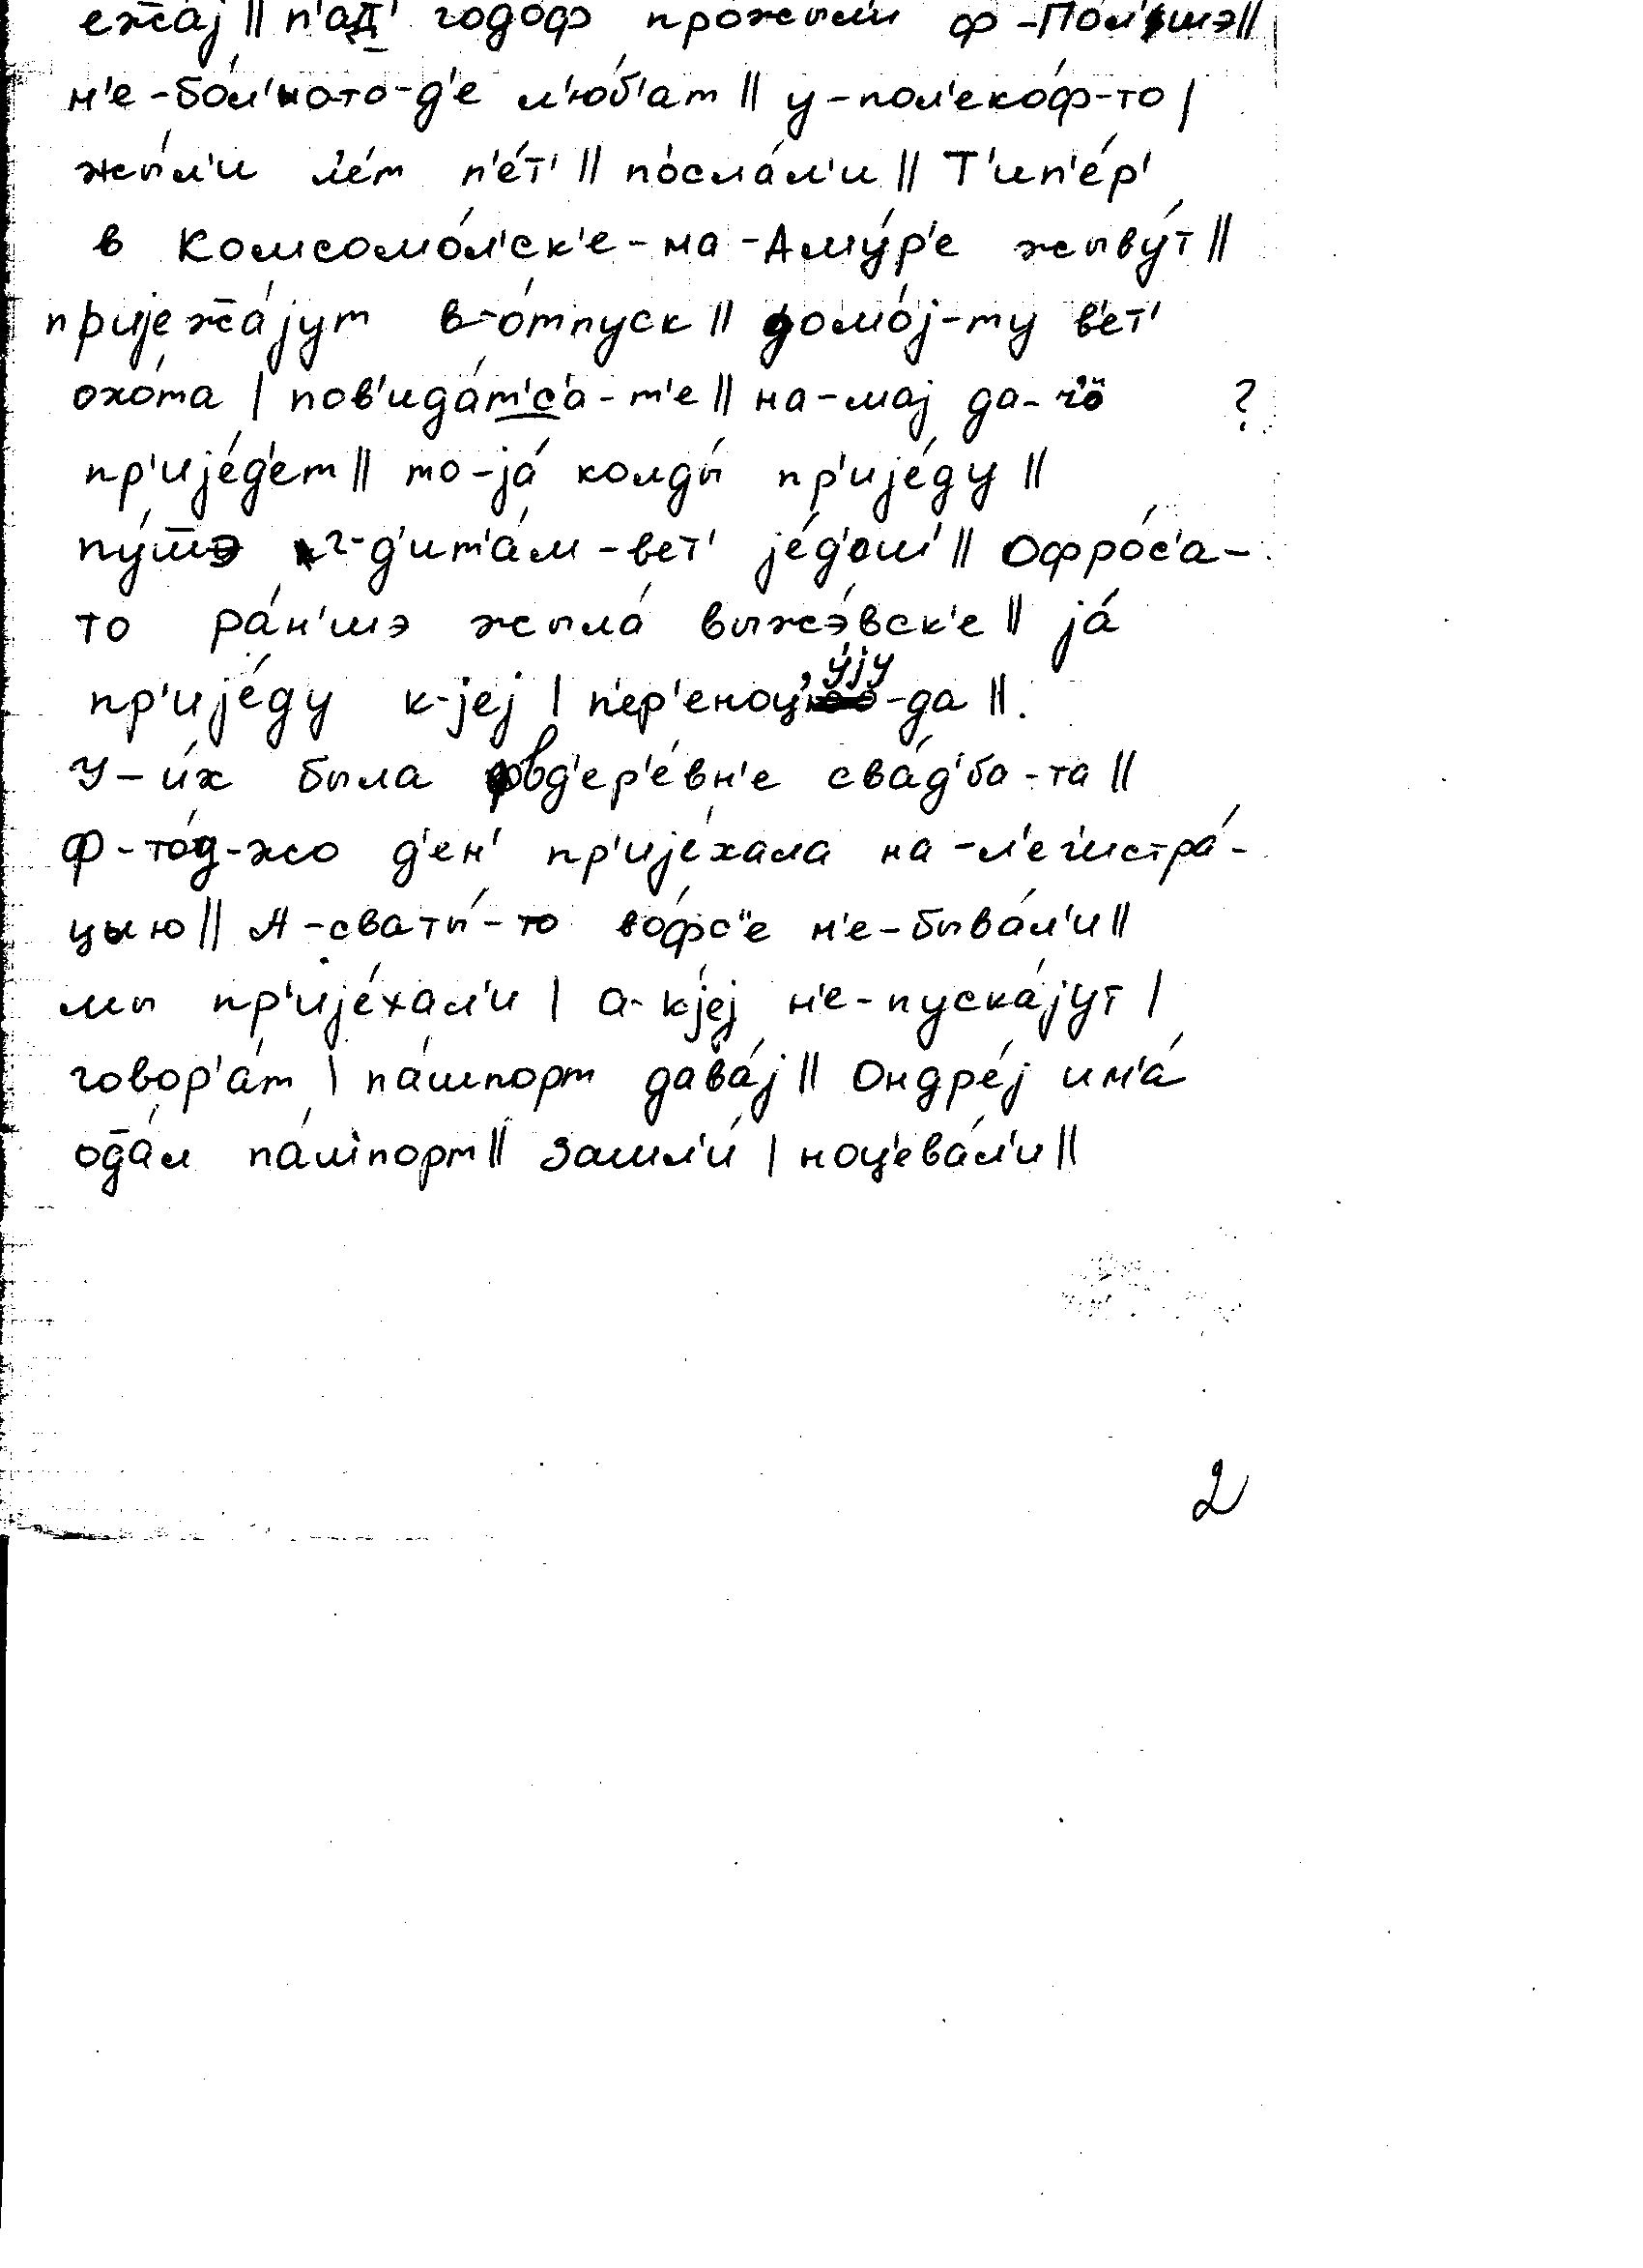 ежа̄ј || п'ад̄' годо́ф прожы́л'и ф-По́л'шэ ||
н'е-бо́л'ното-д'е л'ю́б'ат || у-пол'еко́ф-то |
жы́л'и л'е́т п'е́т' || посла́л'и || Т'ип'е́р'
в Комсомо́л'ск'е-на-Аму́р'е жыву́т ||
пријежа̄́јут в-о́тпуск || домо́ј-ту в'ет'
охо́та | пов'ида́т'с'а-т'е || на-мај да-
?
пр'ије́д'ет || то-ја́ колды́ пр'ије́ду ||
пу́ш̄э г-д'ит'а́м-вет' је́д'ош' || Офро́с'а-
то ра́н'шэ жыла́ выжэ́вск'е || ја́
пр'ије́ду к-јеј | п'ер'еноц'у́ју-да ||.
У-и́х была вд'ер'е́вн'е сва́д'ба-та ||
Ф-то́д-жо д'ен' пр'ије́хала на-л'ег'истра́-
цыю || А-сваты́-то во́фс'е н'е-быва́л'и ||
мы пр'ије́хал'и | а-кјеј н'е-пуска́јут |
говор'а́т | па́шпорт дава́ј || Ондре́ј им'а́
од̄а́л па́шпорт || Зашл'и́ | ноц'ева́л'и ||
2